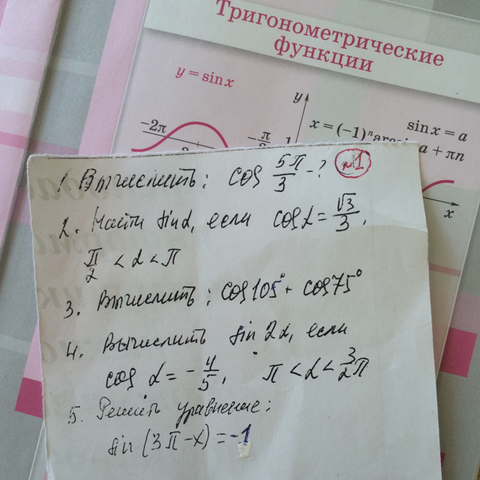 Тригонометрические
функции
y = sin x
y
sin x = a
-2π
x = (-1)ⁿ arcsin a + πn
x
№1
1. Вычислить: cos 5π/3 - ?
2. Найти sin α, если cos α = √3/3,
π/2 < α < π
3. Вычислить: cos 105° + cos 75°
4. Вычислить sin 2α, если
cos α = - 4/5, π < α < 3/2 π
5. Решить уравнение:
sin (3π - x) = -1